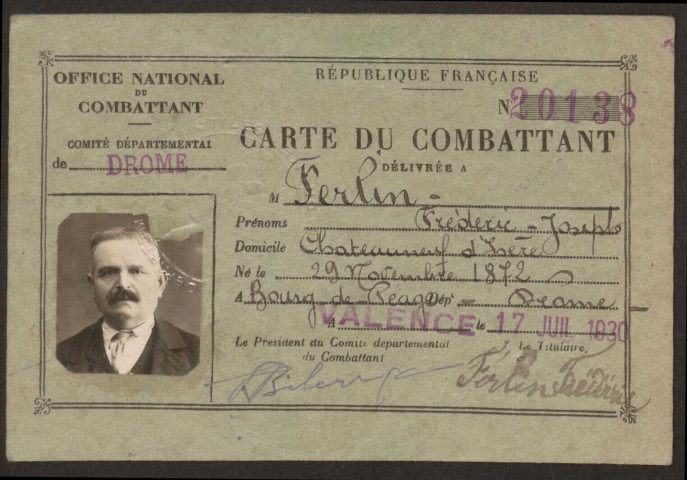 OFFICE NATIONAL
DU
COMBATTANT
COMITÉ DÉPARTEMENTAL
de DROME
RÉPUBLIQUE FRANÇAISE
N 20138
CARTE DU COMBATTANT
DÉLIVRÉE A
M Ferlin
Prénoms Fréderic - Joseph
Domicile Chateauneuf d'Isère
Né le 29 Novembre 1872
A Bourg-de-Peage Dépt Drome
A VALENCE le 17 JUIL 1930
Le Président du Comité départemental
du Combattant
Le Titulaire,
Ferlin Fréderic